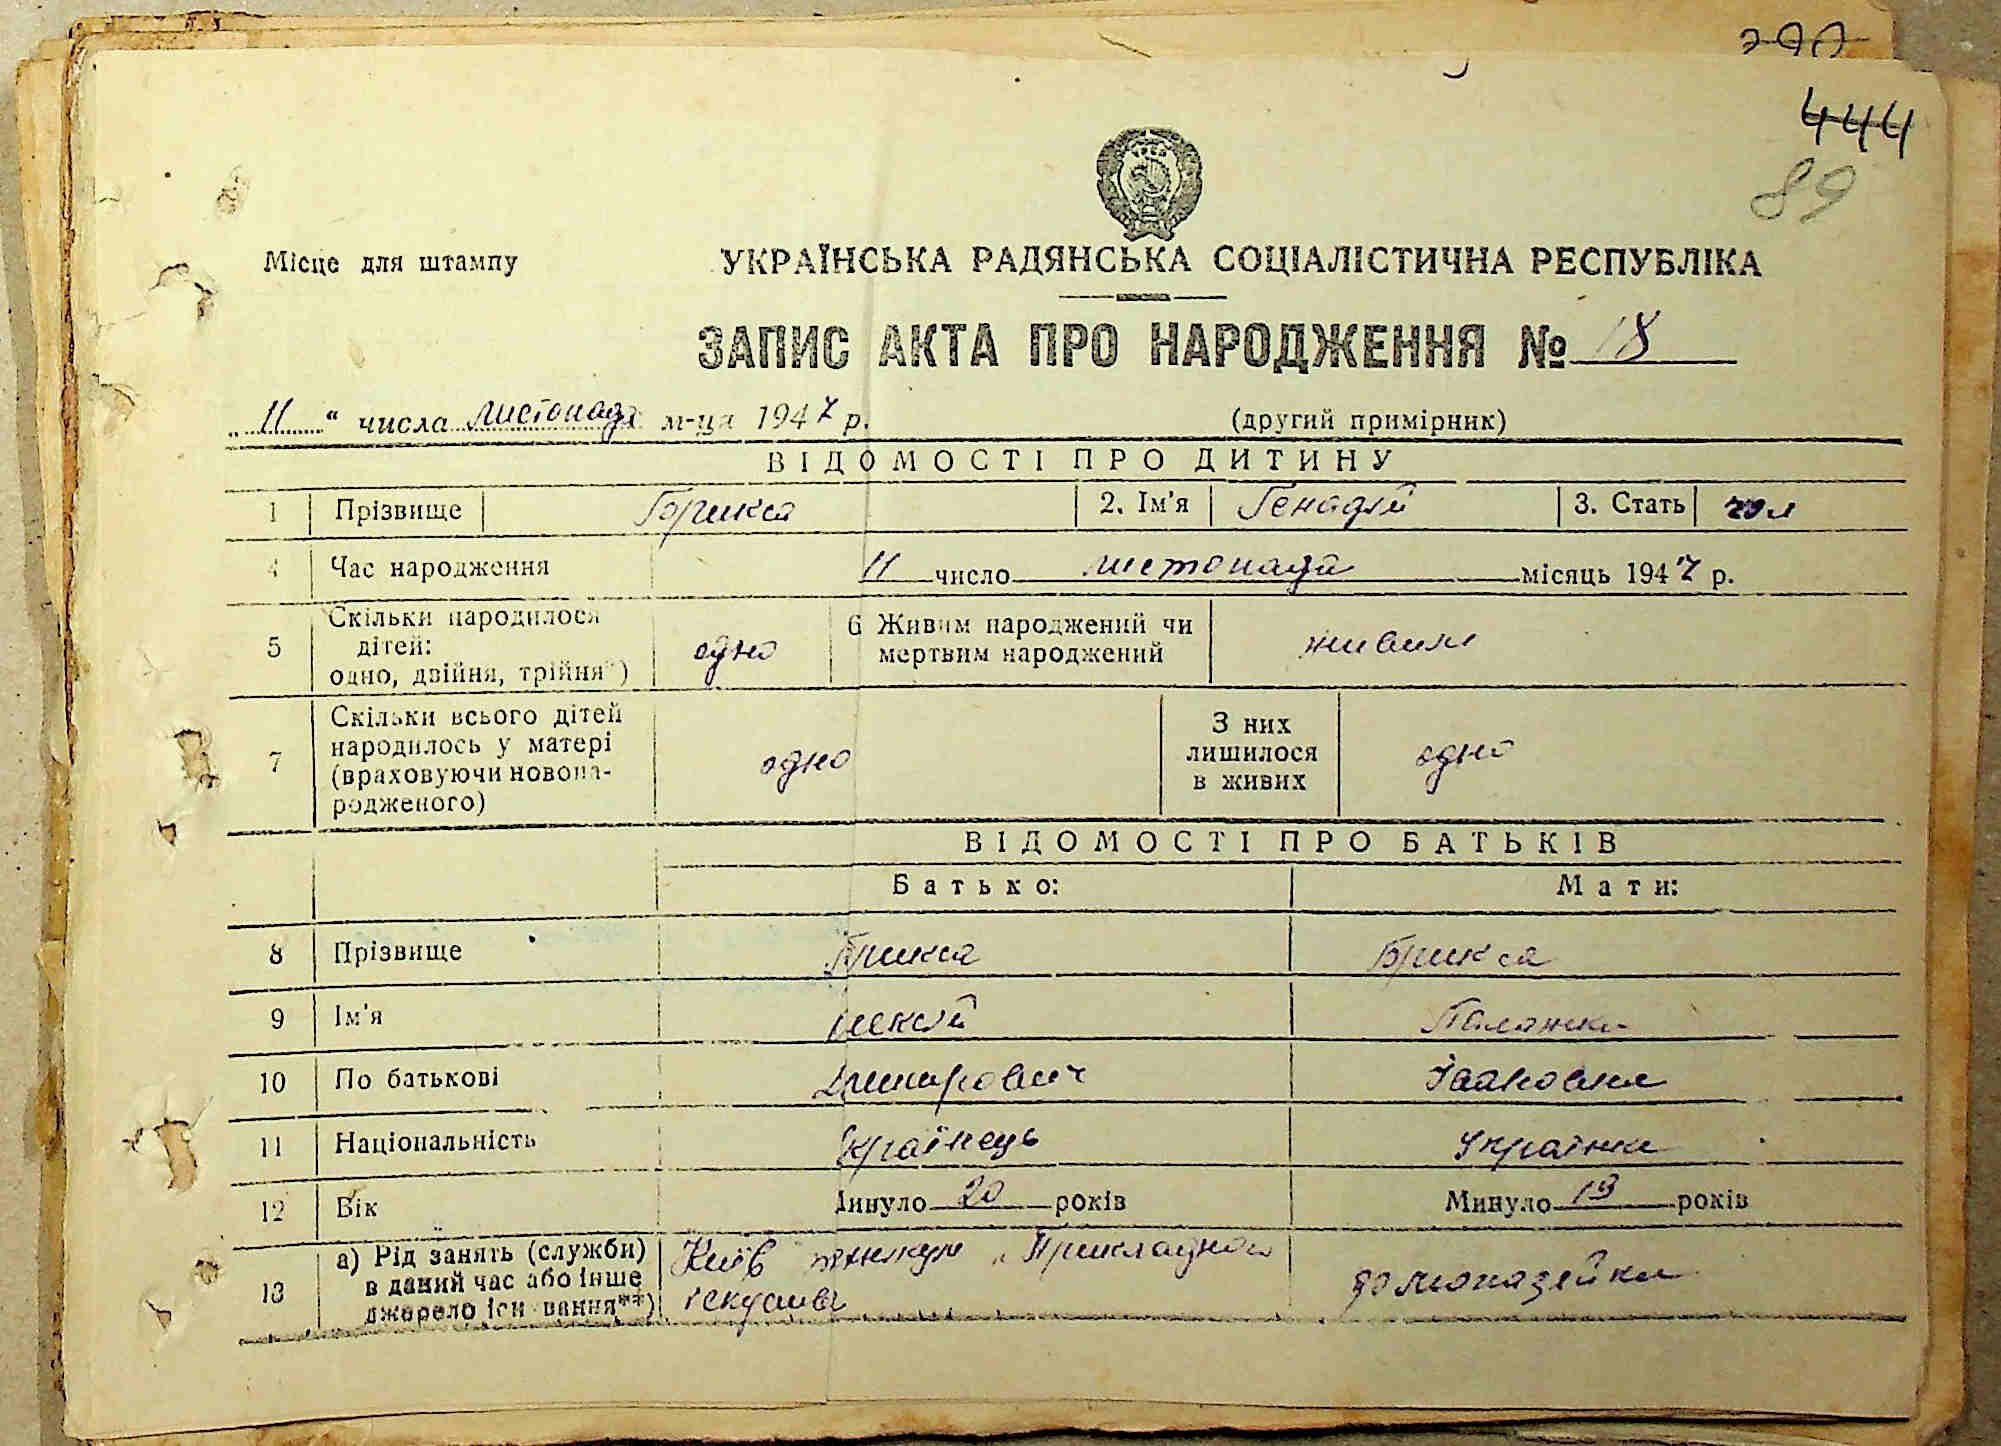 444
89
Місце для штампу
УКРАЇНСЬКА РАДЯНСЬКА СОЦІАЛІСТИЧНА РЕСПУБЛІКА
ЗАПИС АКТА ПРО НАРОДЖЕННЯ № 18
„ 11 “ числа листопада м-ця 1947 р. (другий примірник)
ВІДОМОСТІ ПРО ДИТИНУ
1 Прізвище 2. Ім'я Генадій 3. Стать чол
4 Час народження 11 число листопада місяць 1947 р.
5 Скільки народилося дітей: одно, двійня, трійня*) одно 6 Живим народжений чи мертвим народжений живим
7 Скільки всього дітей народилось у матері (враховуючи новона-родженого) одно З них лишилося в живих одно
ВІДОМОСТІ ПРО БАТЬКІВ
Батько: Мати:
8 Прізвище Брикса Брикса
9 Ім'я Палажка
10 По батькові Івановна
11 Національність Українець Українка
12 Вік Минуло 20 років Минуло 19 років
13 а) Рід занять (служби) в даний час або інше джерело існування**) Київ домохазейка